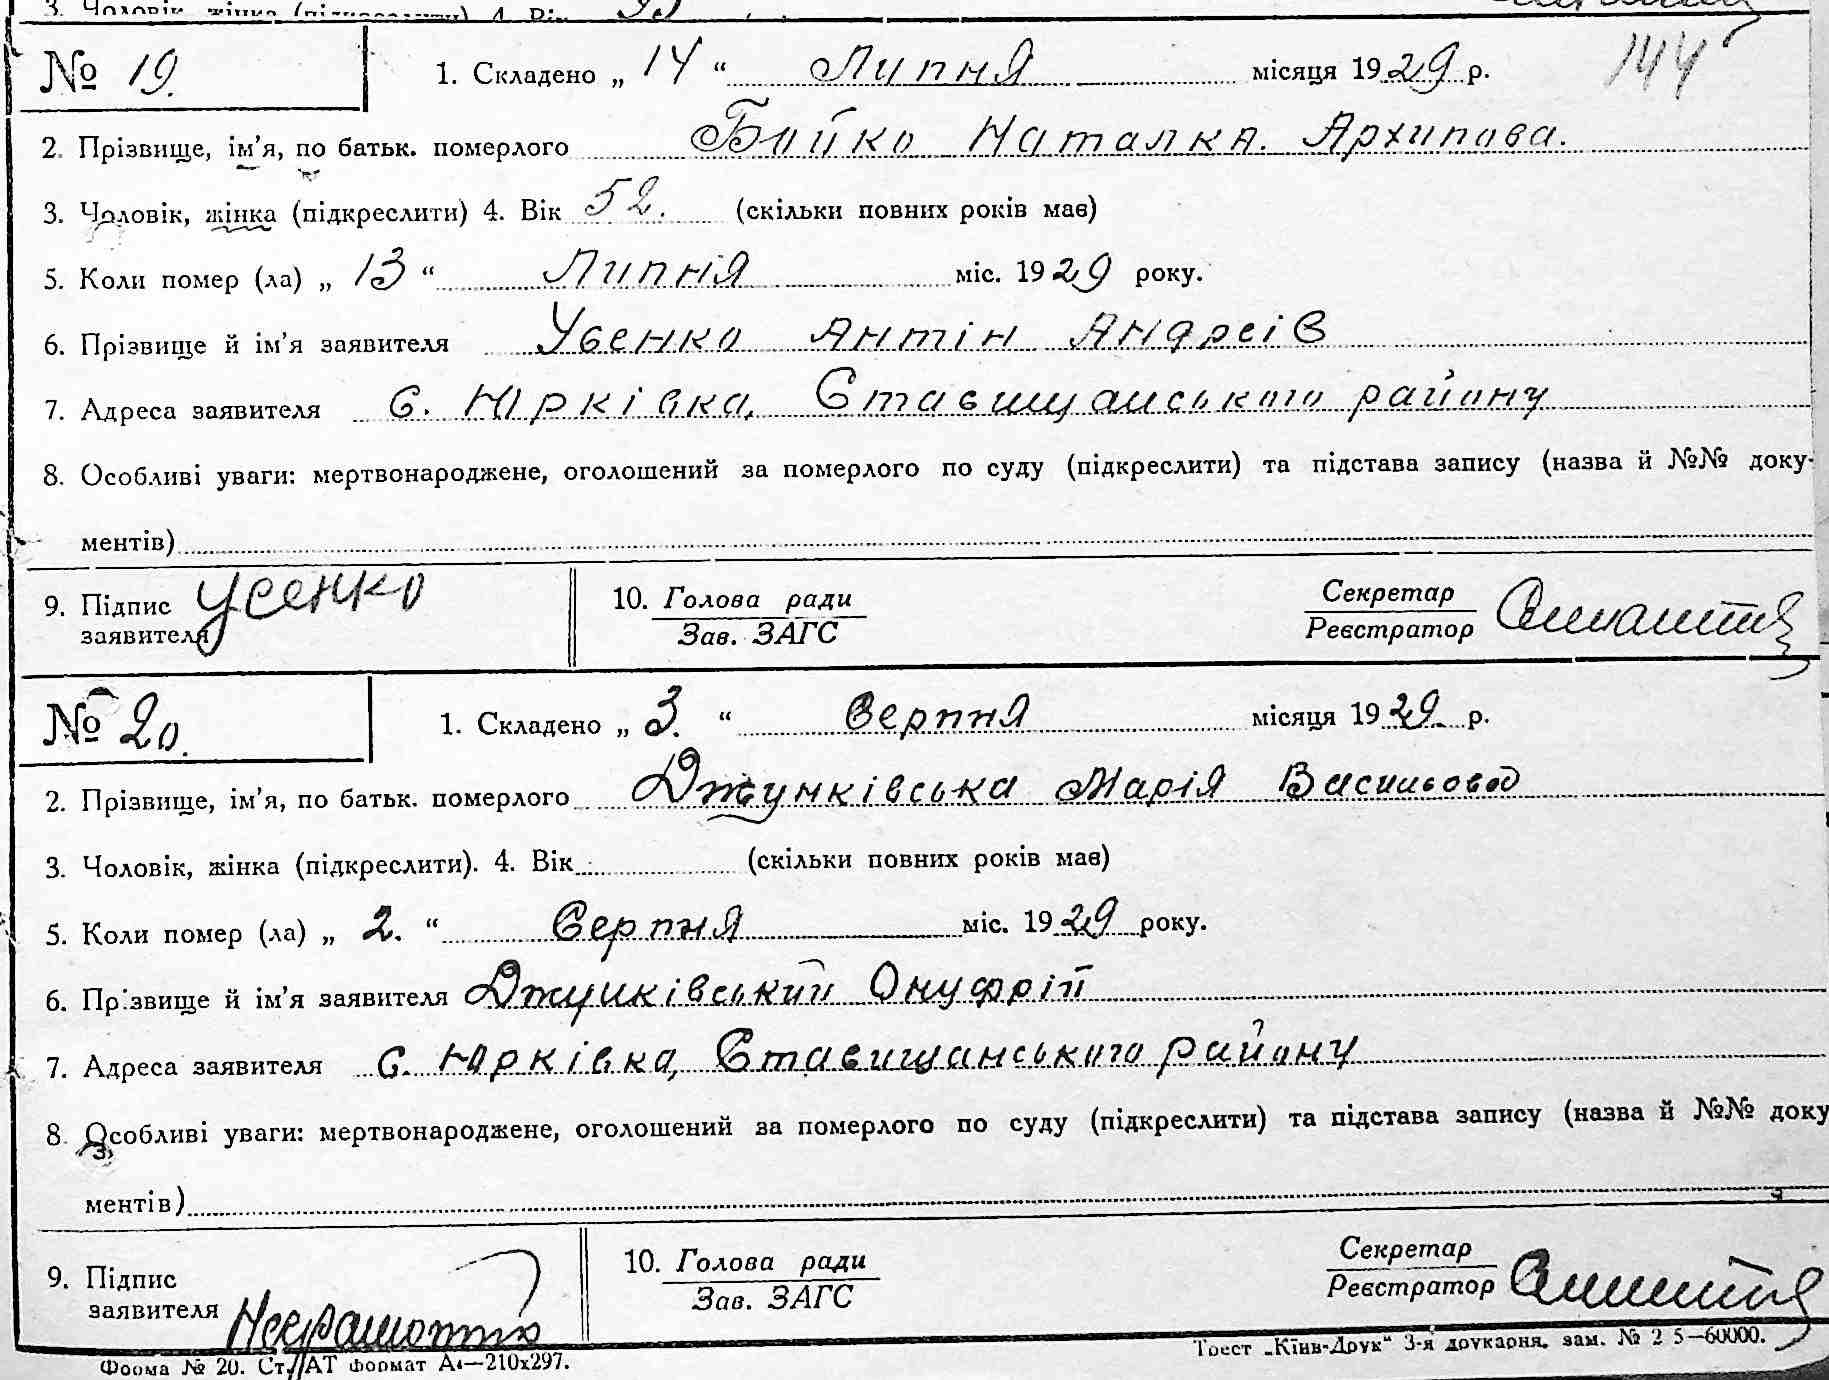 3. Чоловік, жінка (підкреслити) 4. Вік
№ 19.
1. Складено „ 14 “ Липня місяця 1929 р.
144
2. Прізвище, ім’я, по батьк. померлого Бойко Наталка. Архипова.
3. Чоловік, жінка (підкреслити) 4. Вік 52. (скільки повних років має)
5. Коли помер (ла) „ 13 “ Липня міс. 1929 року.
6. Прізвище й ім’я заявителя Усенко Антін Андреів
7. Адреса заявителя с. Юрківка, Ставищанського району
8. Особливі уваги: мертвонароджене, оголошений за померлого по суду (підкреслити) та підстава запису (назва й №№ доку-
ментів)
9. Підпис заявителя Усенко
10. Голова ради
Зав. ЗАГС
Секретар
Реєстратор
№ 20.
1. Складено „ 3. “ Серпня місяця 1929 р.
2. Прізвище, ім’я, по батьк. померлого Джунківська Марія Васильова
3. Чоловік, жінка (підкреслити). 4. Вік (скільки повних років має)
5. Коли помер (ла) „ 2. “ Серпня міс. 1929 року.
6. Прізвище й ім’я заявителя Джунківський Онуфрій
7. Адреса заявителя с. Юрківка, Ставищанського району
8. Особливі уваги: мертвонароджене, оголошений за померлого по суду (підкреслити) та підстава запису (назва й №№ доку
ментів)
9. Підпис заявителя Неграмотна
10. Голова ради
Зав. ЗАГС
Секретар
Реєстратор
Форма № 20. Ст. АТ формат А4—210х297.
Трест „Київ-Друк“ 3-я друкарня. зам. № 2 5—60000.